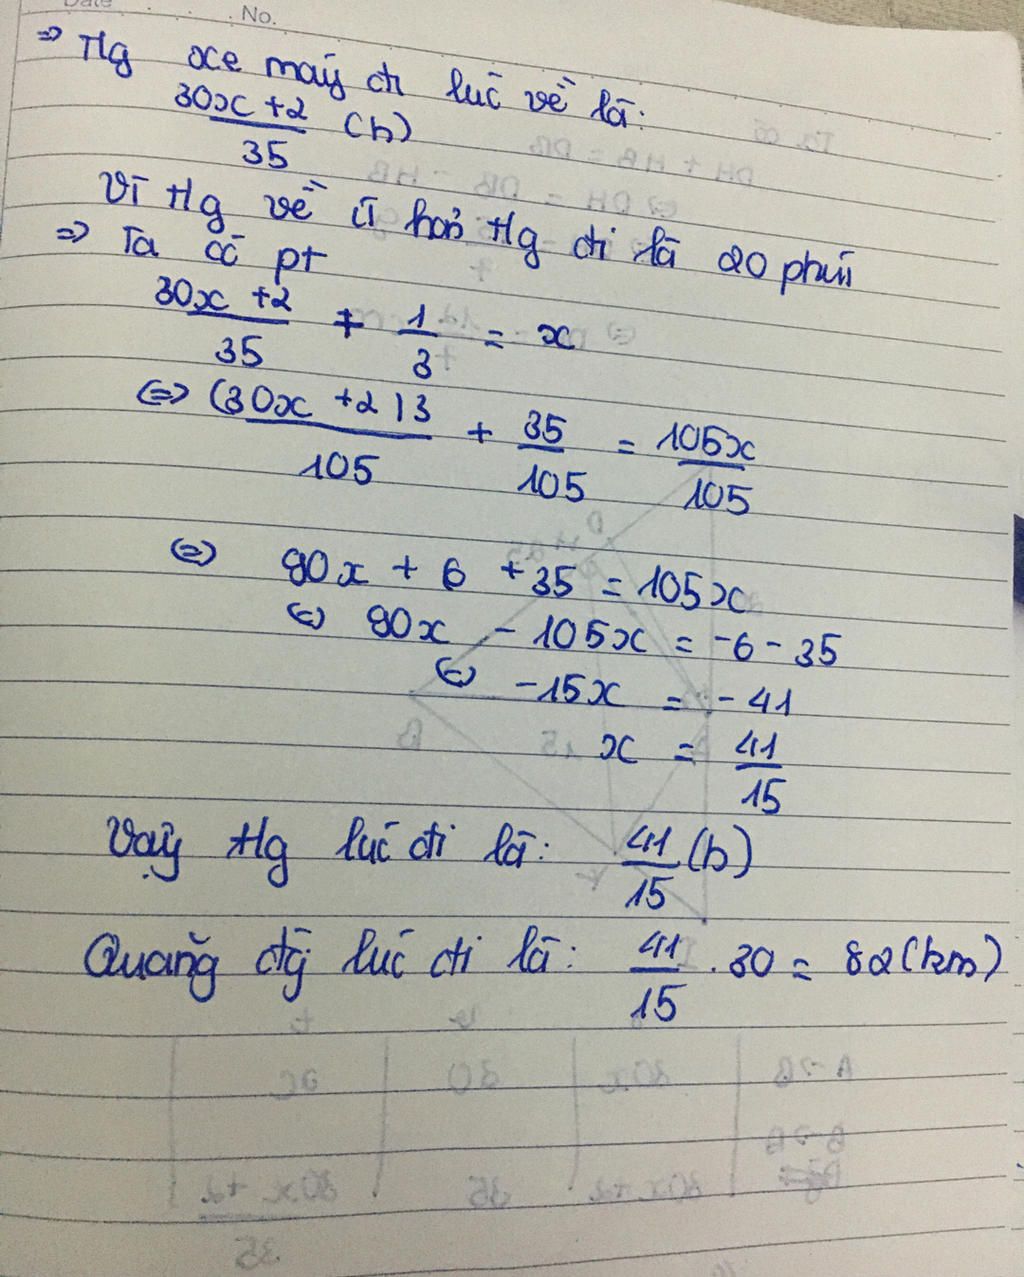 Date No.
=> Tlg xe máy đi lúc về là:
30x+2 / 35 (h)
Vì tlg về ít hơn tlg đi là 20 phút
=> Ta có pt
30x+2 / 35 + 1 / 3 = x
<=> (30x+2)3 / 105 + 35 / 105 = 105x / 105
<=> 90x + 6 + 35 = 105x
<=> 90x - 105x = -6 - 35
<=> -15x = -41
x = 41 / 15
Vậy tlg lúc đi là: 41 / 15 (h)
Quãng đg lúc đi là: 41 / 15 . 30 = 82 (km)